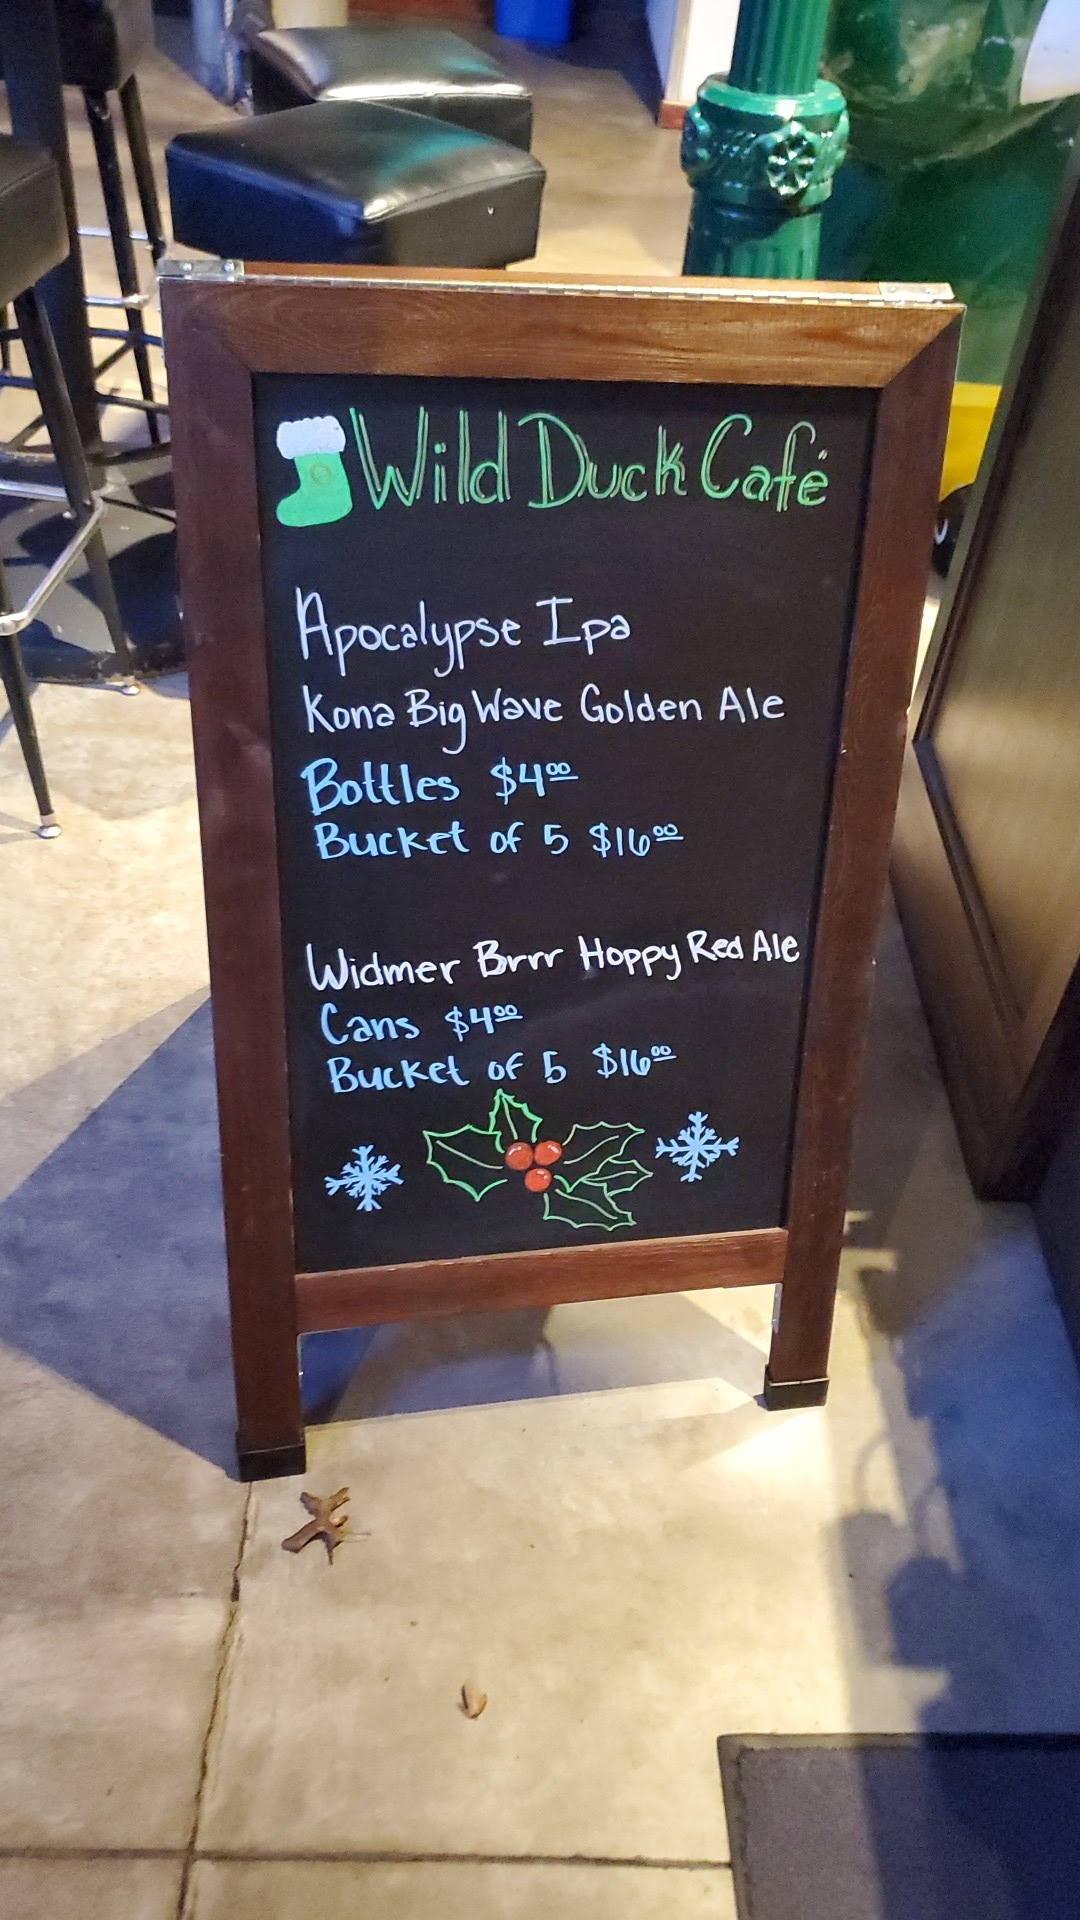 Wild Duck Café
Apocalypse Ipa
Kona Big Wave Golden Ale
Bottles $4.00
Bucket of 5 $16.00
Widmer Brrr Hoppy Red Ale
Cans $4.00
Bucket of 5 $16.00